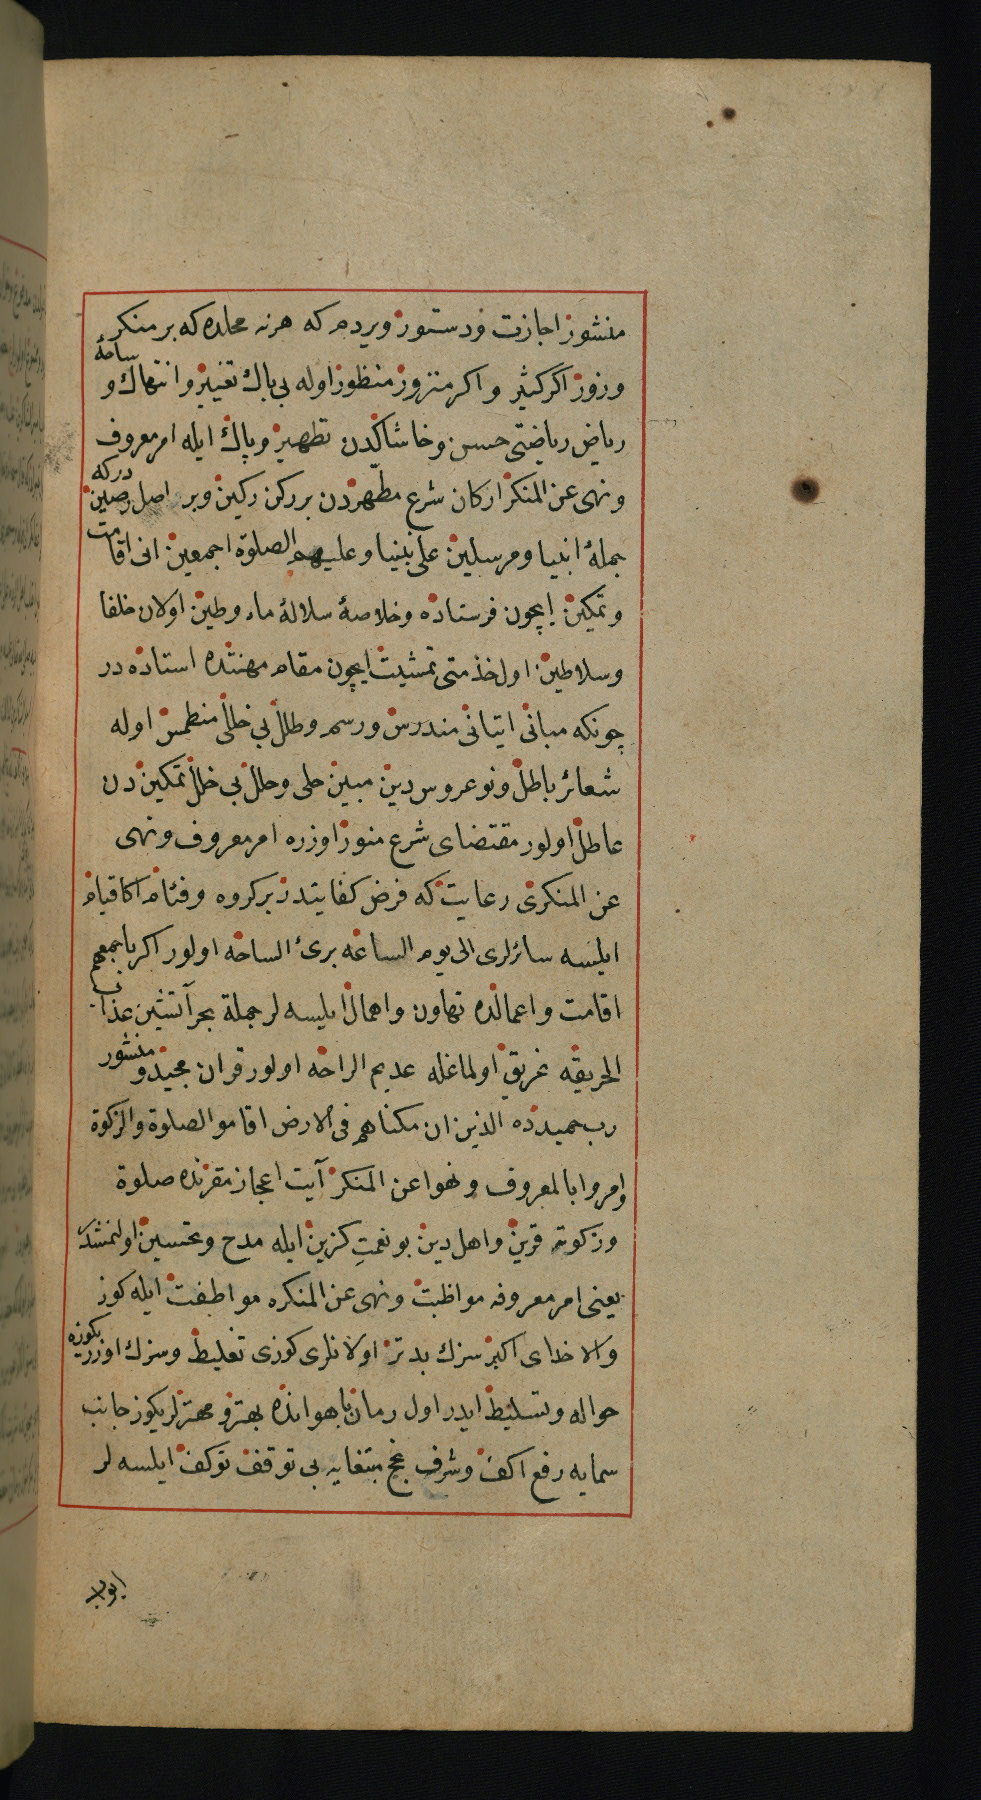 منشور اجازت و دستور ویردم که هر نه محلده که بر منکر
وزور اکر کثیر و اکر منزور منظور اوله بی باك تغییر و انتهاك و ساحۀ
ریاض ریاضتی خس و خاشاکدن تطهیر و پاك ایله امر معروف
ونهی عن المنکر ارکان شرع مطهردن بر رکن رکین وبر اصل رصیندر که
جملۀ انبیا ومرسلین علی نبینا وعلیهم الصلوة اجمعین انی اقامت
وتمکین ایچون فرستاده وخلاصۀ سلالۀ ماء وطین اولان خلفا
وسلاطین اول خذمتی تمشیت ایچون مقام مهنتده استاده در
چونکه مبانئ ایتانی مندرس ورسم وطلل بی خللی منطمس اوله
شعائر باطل ونوعروس دین مبین حلی وحلل بی خلل تمکین دن
عاطل اولور مقتضای شرع منور اوزره امر معروف ونهی
عن المنکری رعایت که فرض کفایتدر بر کروه وفئام اکا قیام
ایلسه سائرلری الی یوم الساعه برئ الساحه اولور اکر باجمعهم
اقامت و اعمالده تهاون واهمال ایلسه لر جمله بحر آتشین عذاب
الحریقه غریق اولماغله عدیم الراحه اولور قران مجید و منشور
رب حمیدده الذین ان مکناهم فی الارض اقاموا الصلوة والزکوة
وامروا بالمعروف ونهوا عن المنکر آیت اعجاز مقرنده صلوة
وزکوته قرین واهل دین بو نعمت کزین ایله مدح وتحسین اولنمشدر
یعنی امر معروفه مواظبت ونهی عن المنکره مواظفت ایله کوز
والا خدای اکبر سزك بدتر اولانلری کوزی تغلیظ وسزك اوزریکوزه
حواله وتسلیط ایدر اول زمان باهوانده بهتر ومهترلریکوز جانب
سمایه رفع اکف وشرف نجح مبتغایه بی توقف توکف ایلسه لر
ابواب